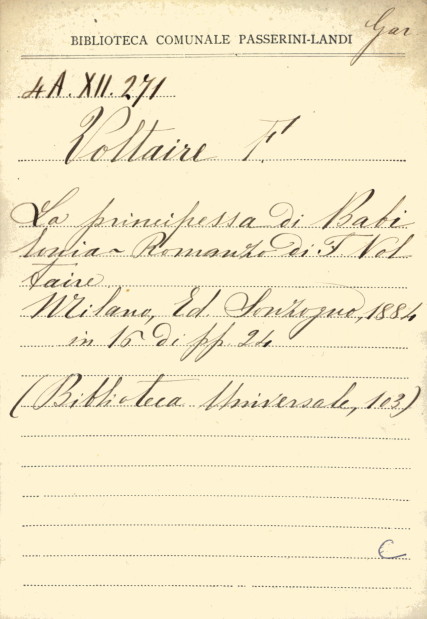 Gar
BIBLIOTECA COMUNALE PASSERINI-LANDI
4A.XII.271
Voltaire F.
La principessa di Babi
lonia - Romanzo di F Vol
taire
Milano, Ed. Sonzogno, 1884
in 16 di pp 24
(Biblioteca Universale, 103)
C